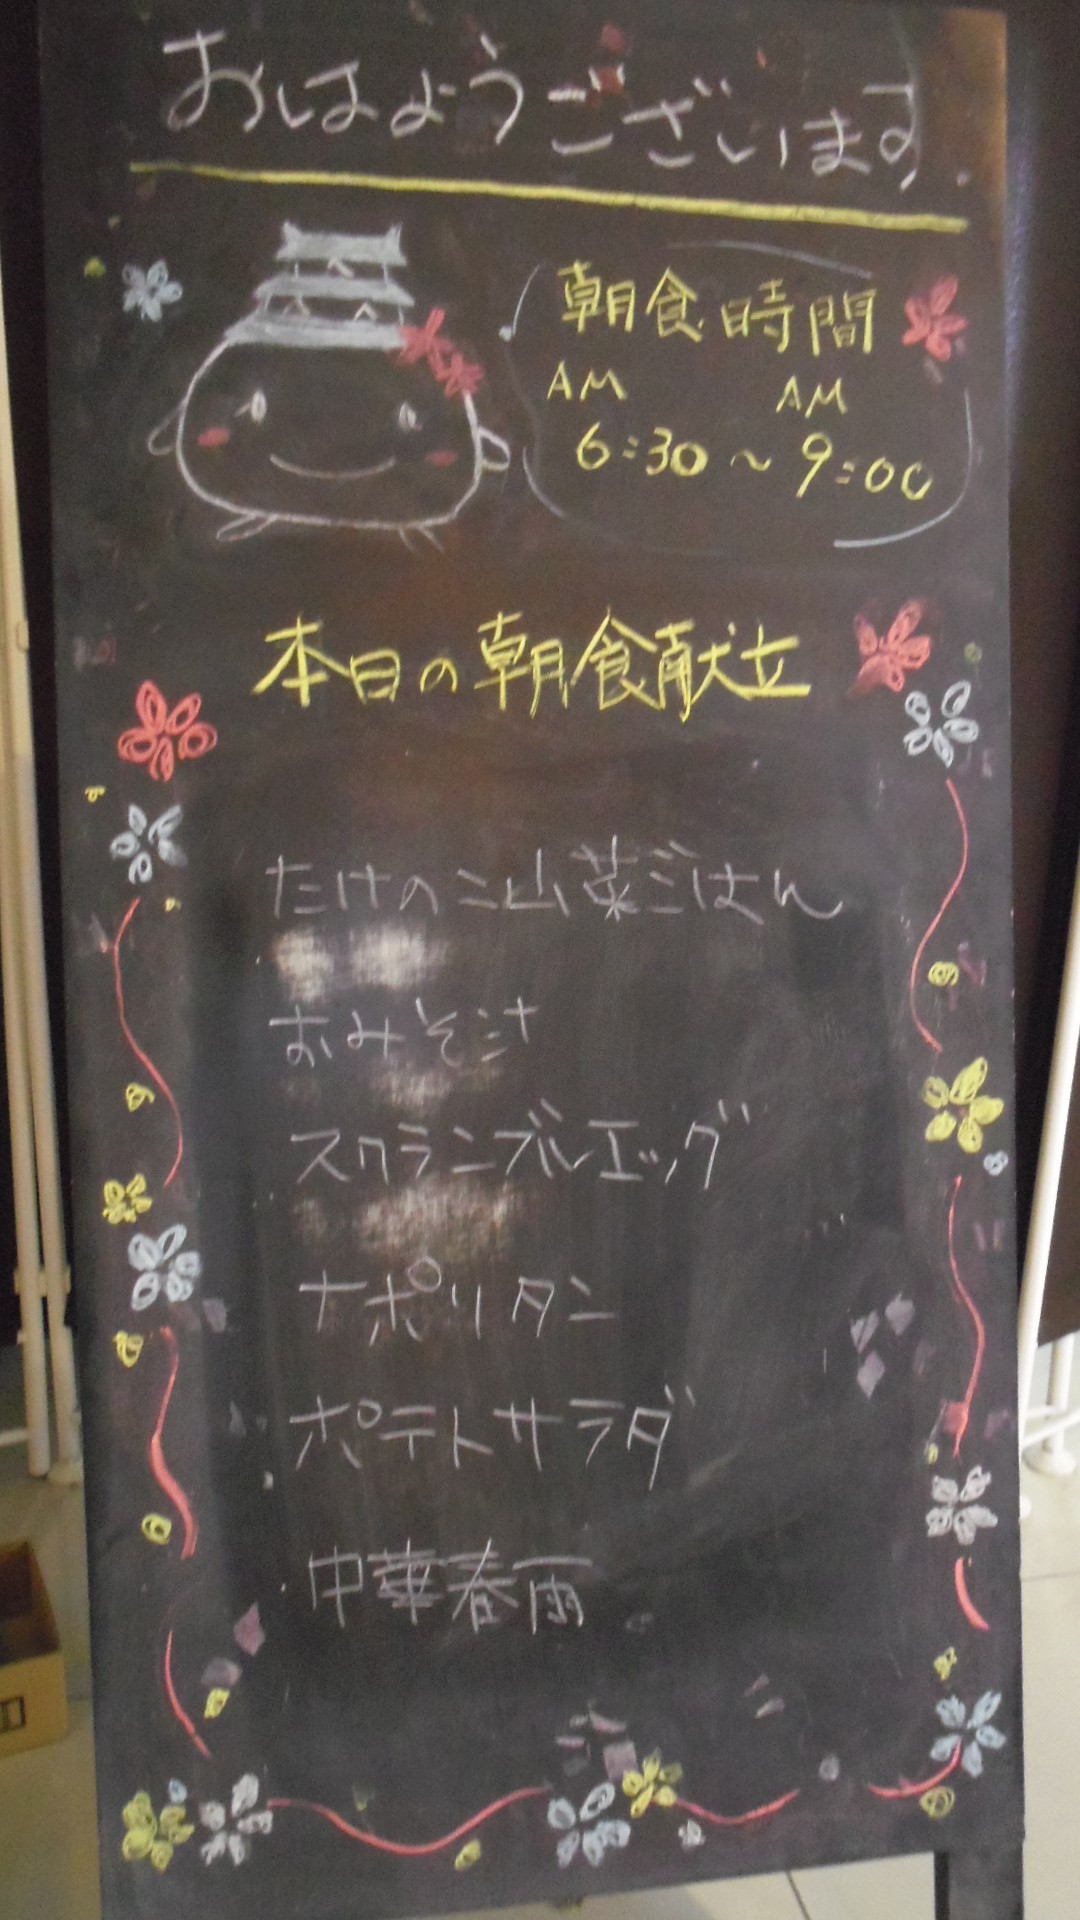 おはようございます.
朝食時間
AM AM
6:30～9:00
本日の朝食献立
たけのこ山菜ごはん
おみそ汁
スクランブルエッグ
ナポリタン
ポテトサラダ
中華春雨